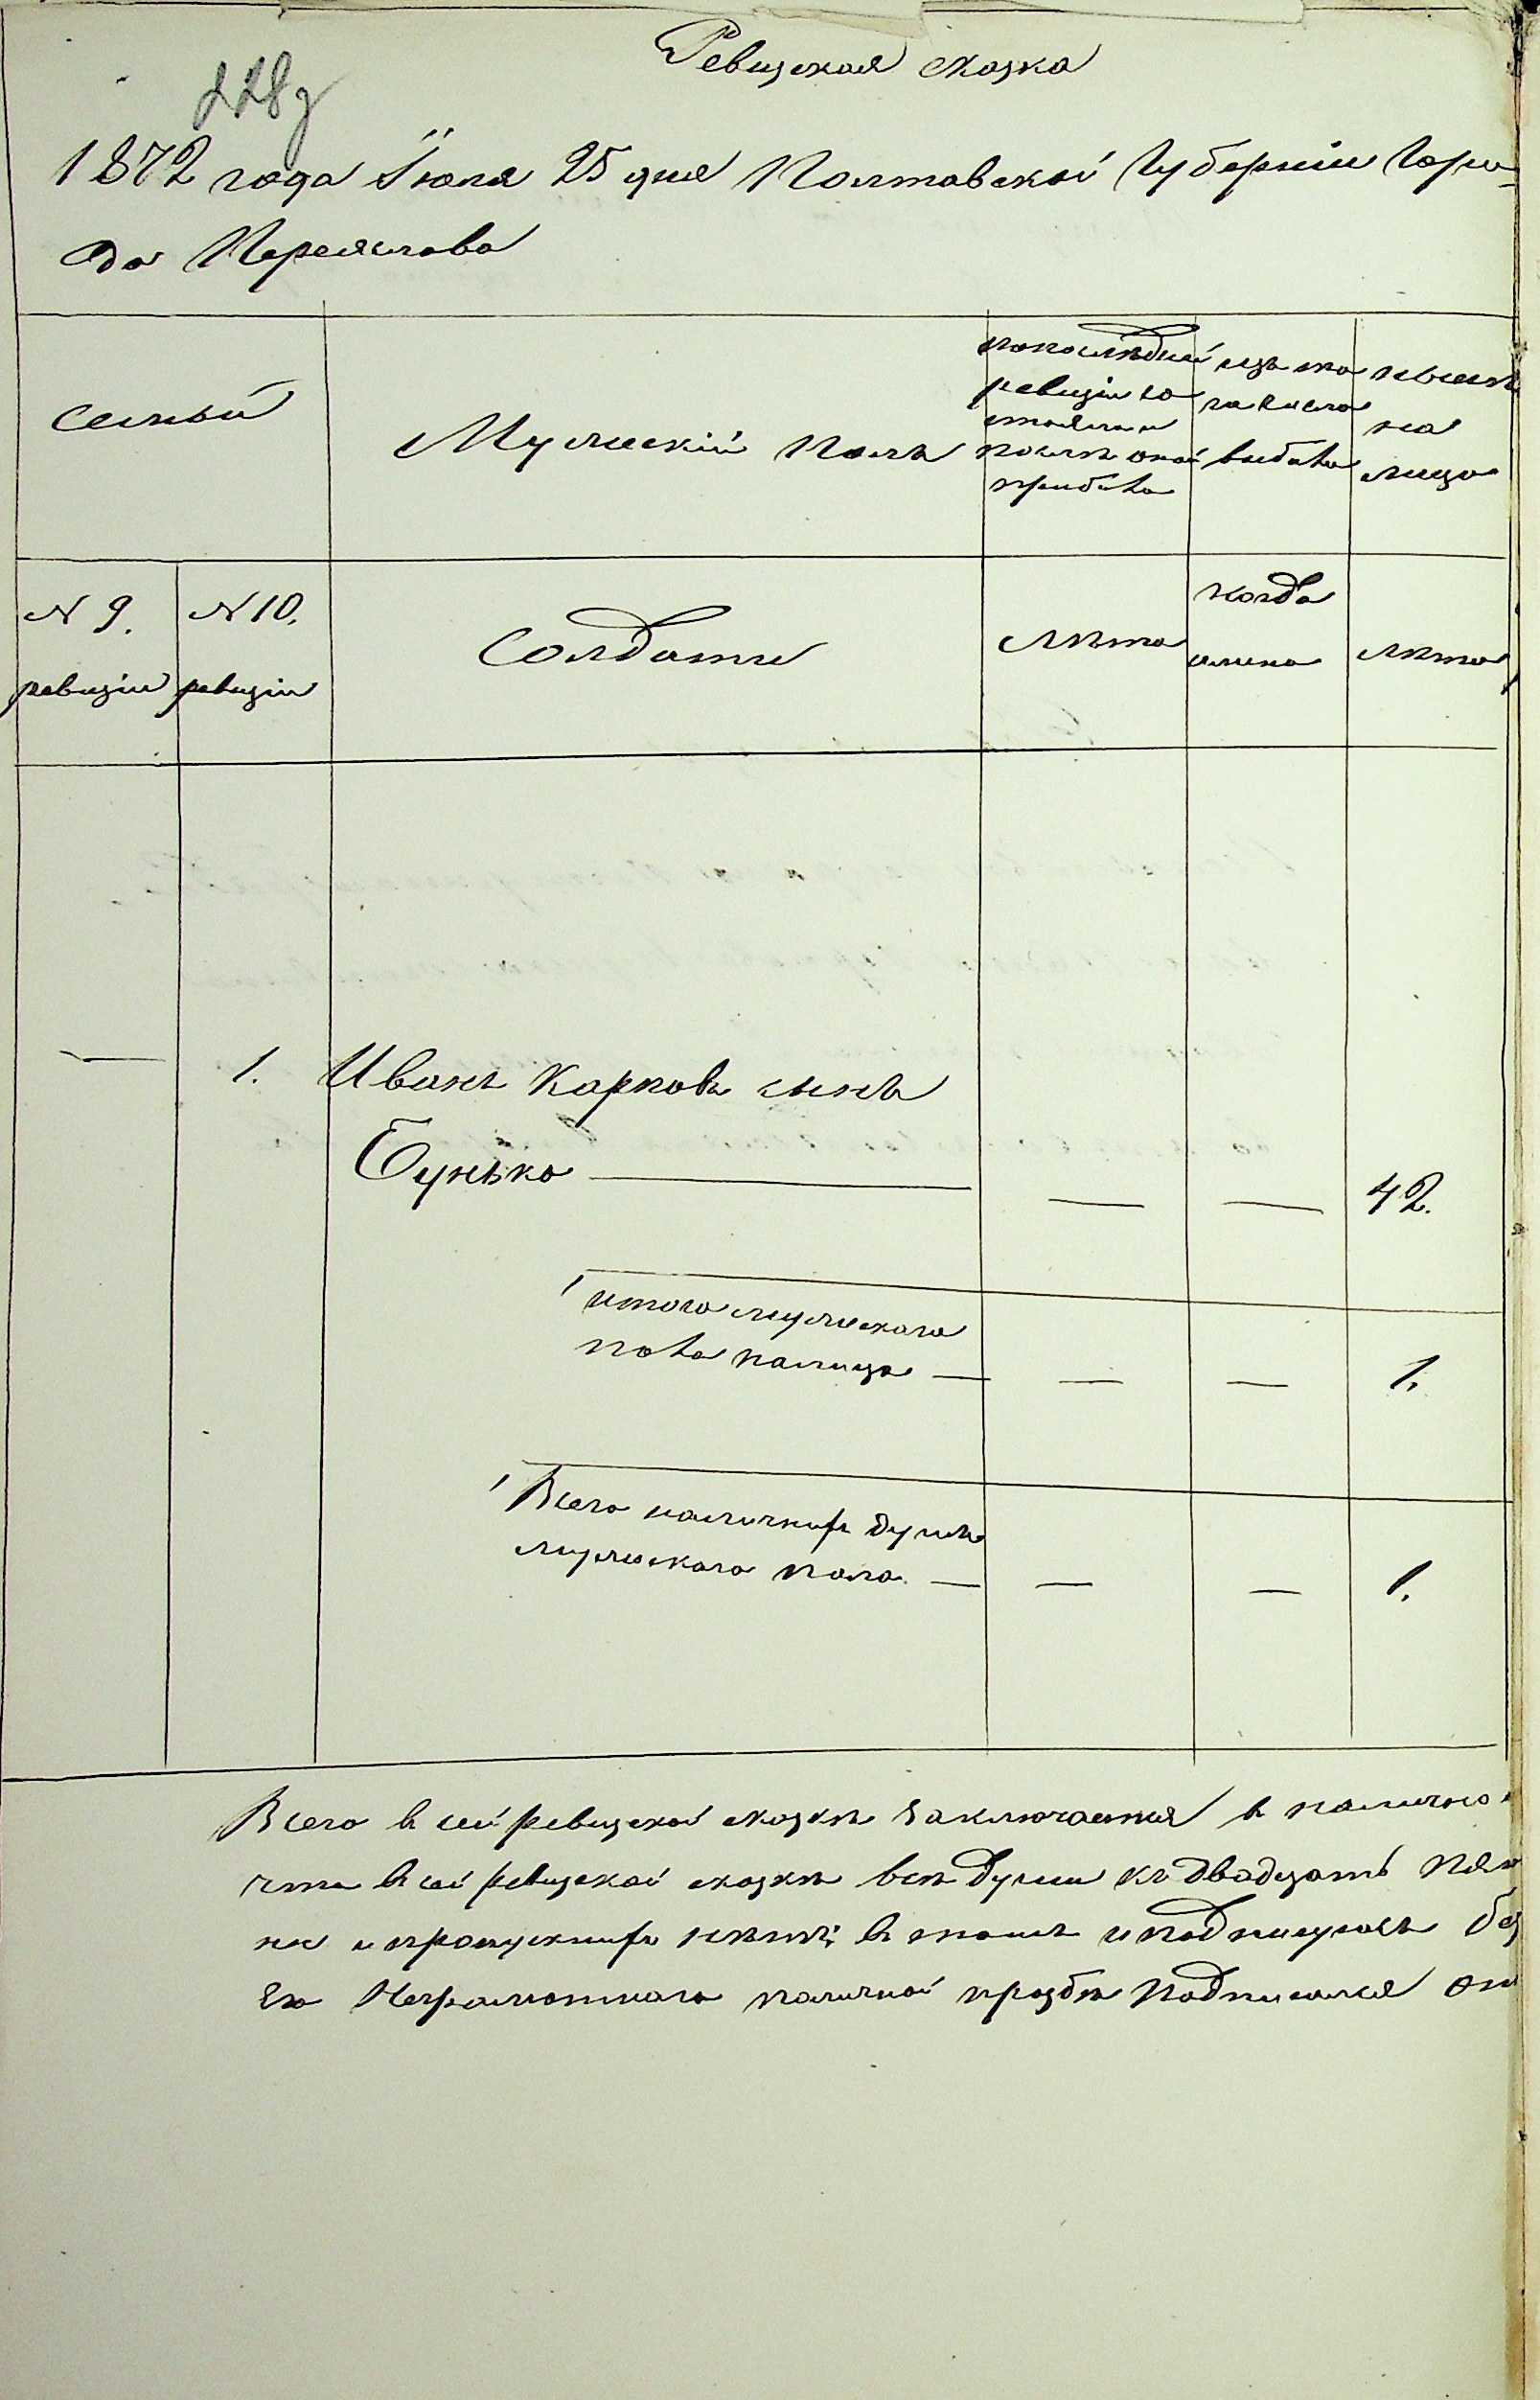 Ревизская сказка
1872 года Іюля 25 дня Полтавской Губерніи Горо-
да Переяслова
семьи
Мужескій полъ
попослѣдней ревизіи состояло и послѣ оной прибыло
изъ того числа выбыло
нынѣ на лицо
N 9. ревизіи
N 10. ревизіи
Солдаты
Лѣта
когда имено
Лѣта
1. Иванъ Карповъ сынъ
Бунько — — — 42.
итого мужескаго
пола налицо — — — 1.
Всего наличныхъ душъ
мужескаго пола — — — 1.
Всего в сей ревизской сказкѣ заключается в налично
что в сей ревизской сказкѣ всѣ души къ двадцать пят
не и пропускныхъ нѣтъ; в томъ и подпишуюсь без
его Неграмотнаго личной прозбѣ подписался